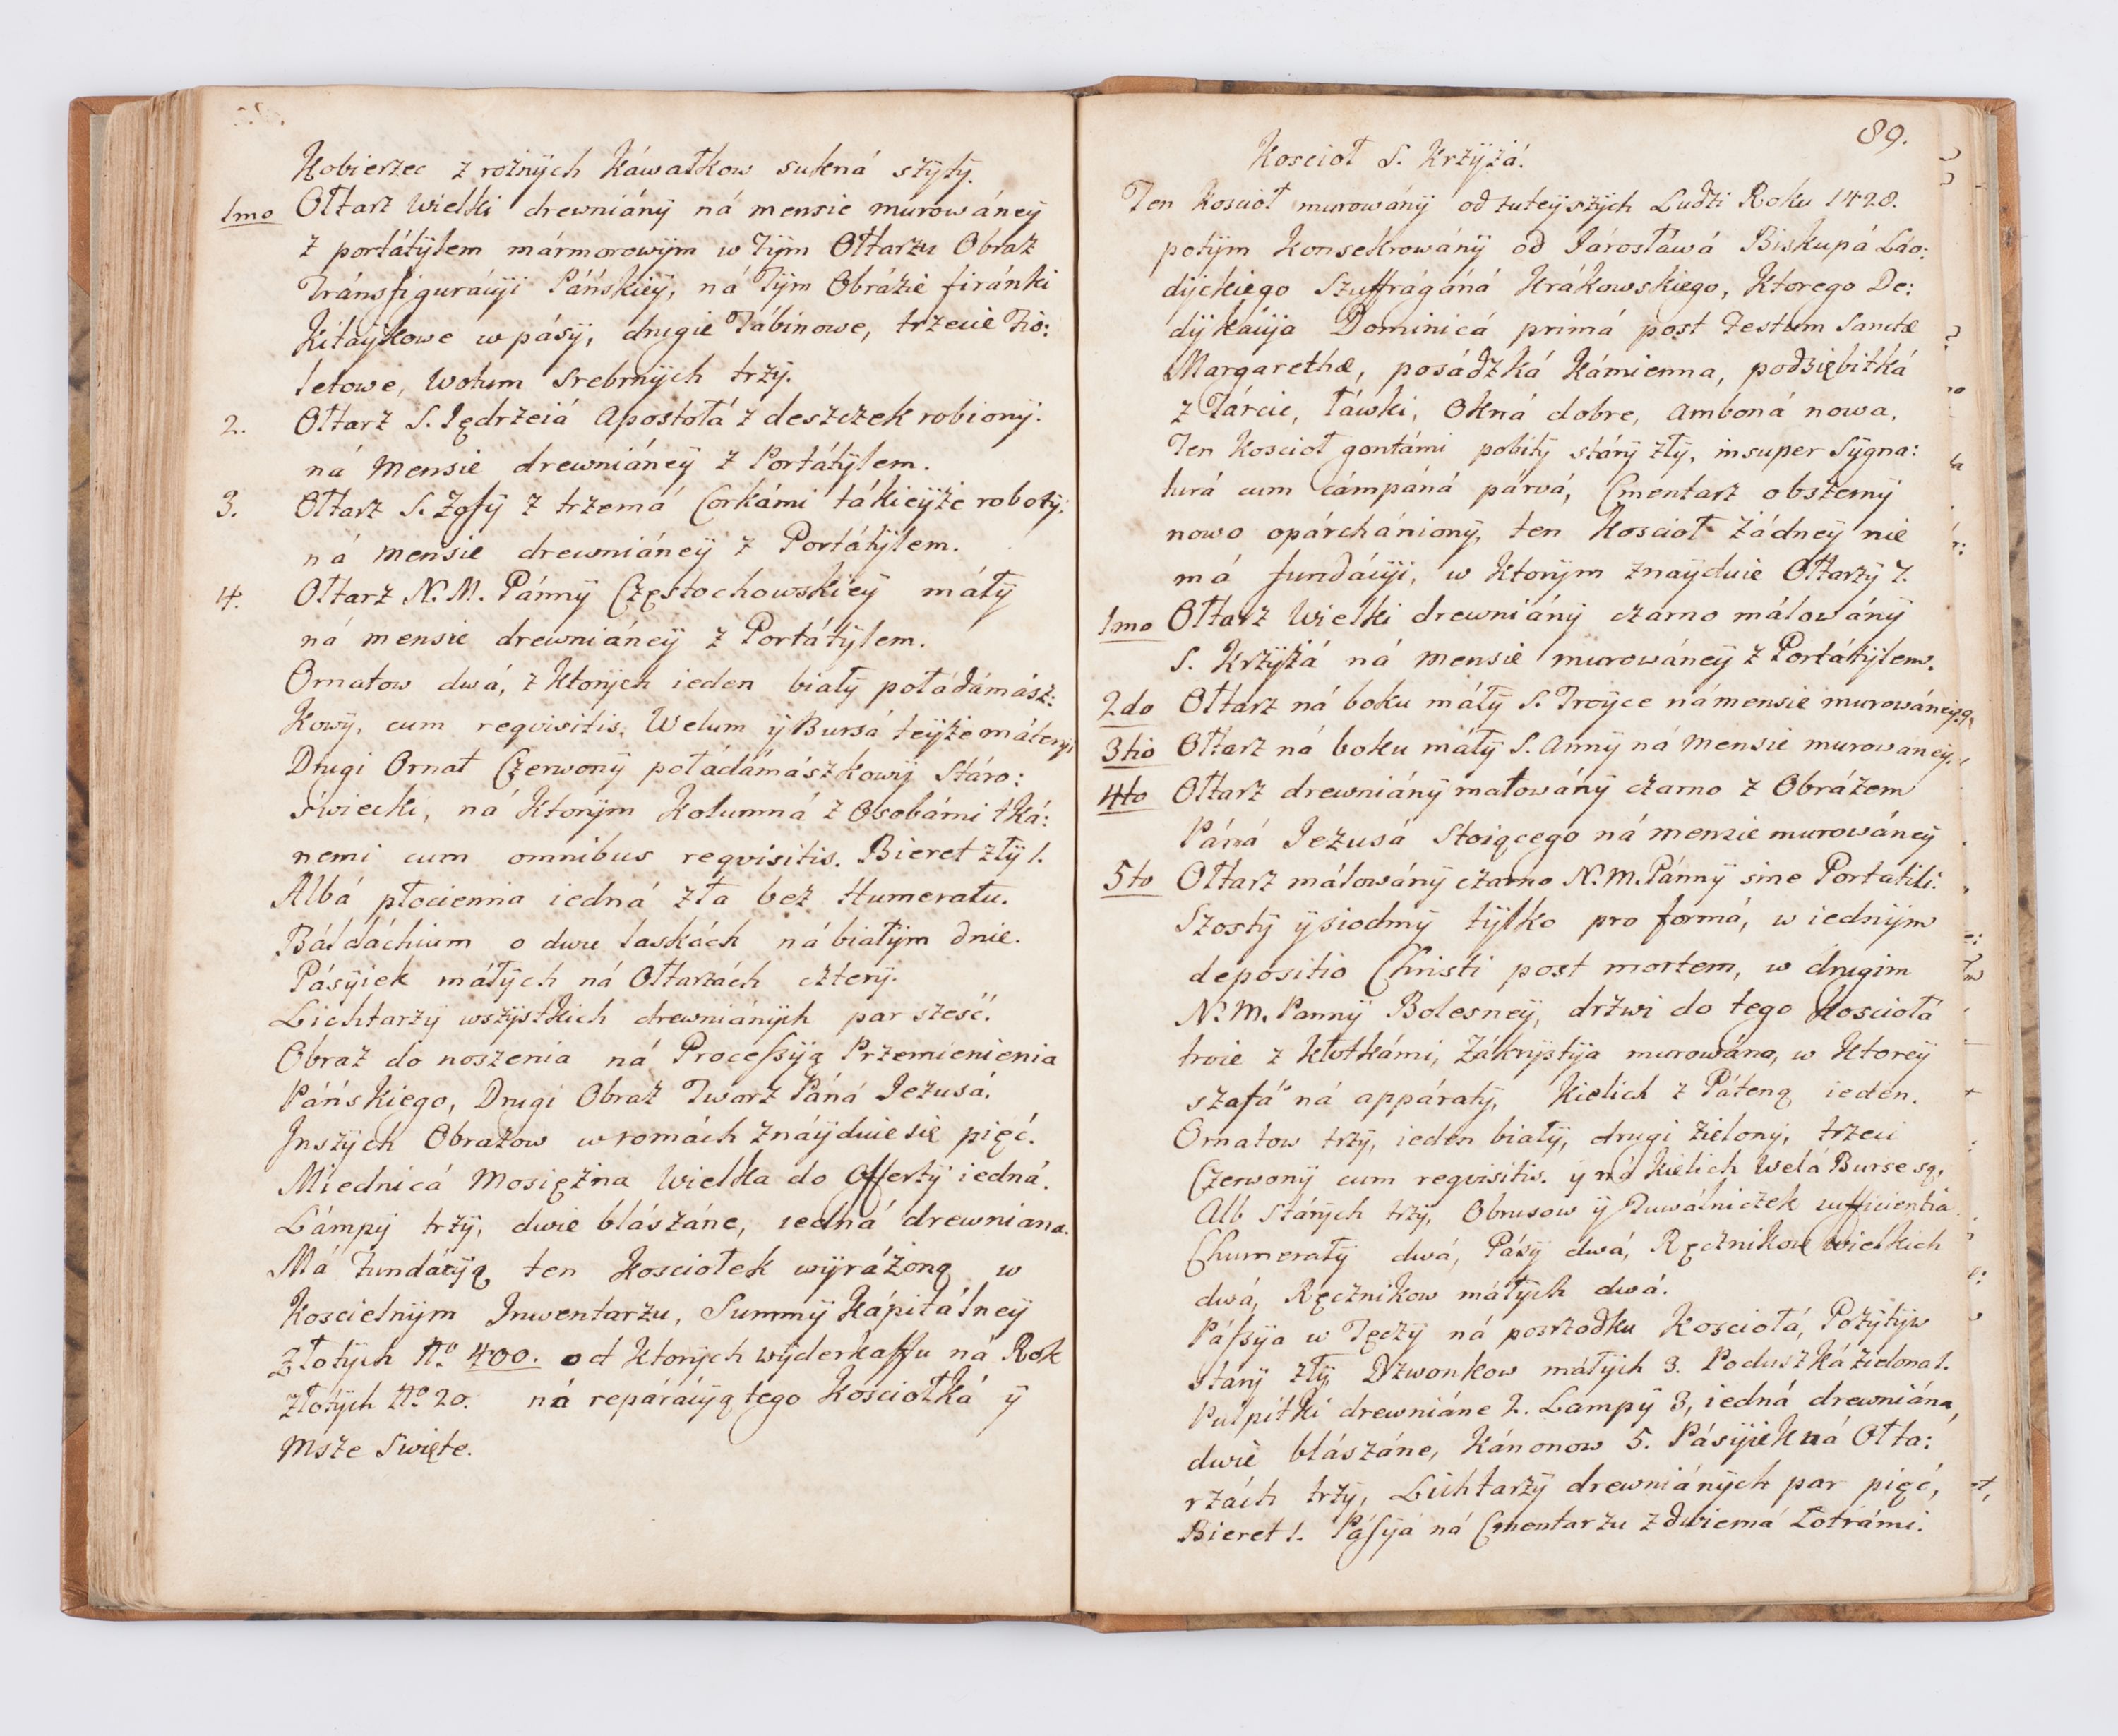 Kobierzec z rożnych káwałkow sukná szyty.
1mo Ołtarz Wielki drewniány ná mensie murowáney
z portátylem mármorowym w Tym Ołtarzu Obraz
Tránsfiguracyi Páńskiey, ná Tym Obrázie firánki
Kitaykowe w pásy, drugie Tábinowe, trzecie Fio:
letowe, Wotum Srebrnych trzy.
2. Ołtarz S. Jędrzeiá Apostołá z deszczek robiony.
ná Mensie drewniáney z Portátylem.
3. Ołtarz S. Zofy z trzemá Corkámi tákieyże roboty.
ná mensie drewniáney z Portátylem.
4. Ołtarz N. M. Pánny Częstochowskiey máły
ná mensie drewniáney z Portátylem.
Ornatow dwá, z ktorych ieden biały połádámász:
kowy, cum reqvisitis, Welum y Bursá teyże máteryi
Drugi Ornat Czerwony połádámászkowy Stáro:
świecki, ná ktorym kolumná z Osobámi tká:
nemi cum omnibus reqvisitis. Bieret zły 1.
Albá płocienna iedná zła bez Humerału.
Báldáchium o dwu laskách ná białym dnie.
Pásyiek máłych ná Ołtarzách cztery.
Lichtarzy wszystkich drewniánych par sześć.
Obraz do noszenia ná Processyą Przemienienia
Páńskiego, Drugi Obraz Twarz Páná Jezusá.
Inszych Obrazow w romách znáyduie się pięć.
Miednicá Mosiężna Wielka do Offerty iedná.
Lámpy trzy, dwie blászáne, iedná drewniana.
Má Fundácyą ten Kosciołek wyráżoną w
Koscielnym Inwentarzu, Summy Kápitálney
Złotych No 400. od ktorych wyderkaffu ná Rok
złotych No 20. ná reparácyą tego Kosciołká y
Msze Swięte.
89.
Koscioł S. Krzyżá.
Ten Koscioł murowány od tuteyszych Ludzi Roku 1428.
potym Konsekrowány od Járosłáwá Biskupá Láo:
dyckiego Szuffrágáná Krákowskiego, Ktorego De:
dykácyja Dominicá primá post Festum Sanctæ
Margarethæ, posádzká kámienna, podsiębitká
z Tárcic, Ławki, Okná dobre, Amboná nowa,
Ten Koscioł gontámi pobity stáry zły, insuper Sygna:
turá cum cámpáná párvá, Cmentarz obszerny
nowo opárchániony, ten Kosciół żádney nie
má fundácyi, w ktorym znayduie Ołtarzy 7.
1mo Ołtarz Wielki drewniány czarno málowány
S. Krzyżá ná mensie murowáney z Portátylem.
2do Ołtarz ná boku máły S. Troyce ná mensie murowáney
3tio Ołtarz ná boku máły S. Anny ná Mensie murowáney.
4to Ołtarz drewniány małowány czarno z Obrázem
Páná Jezusá Stoiącego ná mensie murowáney
5to Ołtarz málowány czarno N. M. Pánny sine Portatili.
Szosty y siodmy tylko pro formá, w iednym
depositio Christi post mortem, w drugim
N. M. Panny Bolesney, drzwi do tego Kosciołá
troie z kłotkámi, Zákrystyja murowána, w ktorey
szafá ná appáraty, Kielich z Páteną ieden.
Ornatow trzy, ieden biały, drugi zielony, trzeci
Czerwony cum reqvisitis. y ná Kielich Welá Burse są,
Alb Stárych trzy, Obrusow y Tuwálniczek sufficientia
Chumerały dwá, Pásy dwá, Ręcznikow wielkich
dwá, Ręcznikow máłych dwá.
Pássyja w Tęczy ná posrzodku Kosciołá, Pozytyw
Stary zły, Dzwonkow máłych 3. Poduszká zielona 1.
Pulpitki drewniáne 2. Lampy 3, iedná drewniána,
dwie blászáne, Kánonow 5. Pásyiek ná Ołta:
rzách trzy, Lichtarzy drewniánych par pięć,
Bieret 1. Pássyá ná Cmentarzu z dwiemá Łotrámi.